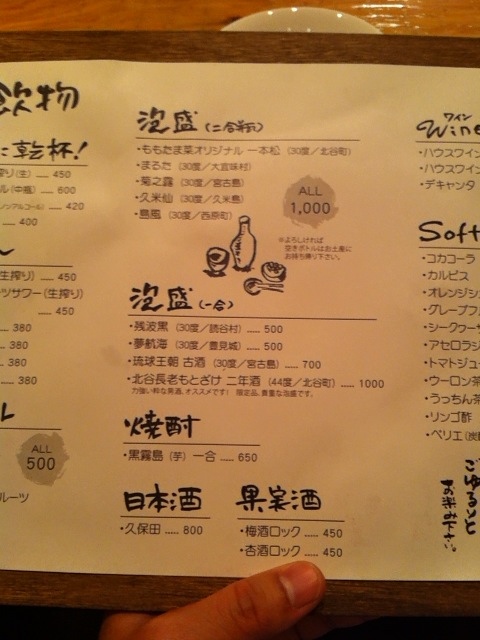 飲物
に乾杯!
搾り(生) ..... 450
ル(中瓶) ..... 600
ノンアルコール) ..... 420
..... 400
生搾り) ..... 450
ツサワー(生搾り)
..... 450
... 380
... 380
... 380
..... 380
ALL
500
ルーツ
泡盛(二合瓶)
・ももたま菜オリジナル 一本松 (30度/北谷町)
・まるた (30度/大宜味村)
・菊之露 (30度/宮古島)
・久米仙 (30度/久米島)
・島風 (30度/西原町)
ALL
1,000
※よろしければ
空きボトルはお土産に
お持ち帰り下さい。
泡盛(一合)
・残波黒 (30度/読谷村) ..... 500
・夢航海 (30度/豊見城) ..... 500
・琉球王朝 古酒 (30度/宮古島) ..... 700
・北谷長老もとざけ 二年酒 (44度/北谷町) ..... 1000
力強い粋な男酒、オススメです! 限定品、貴重な泡盛です。
焼酎
・黒霧島 (芋) 一合 ..... 650
日本酒
・久保田 ..... 800
果実酒
・梅酒ロック ..... 450
・杏酒ロック ..... 450
ワイン
Wine
・ハウスワイン
・ハウスワイン
・デキャンタ
Soft
・コカコーラ
・カルピス
・オレンジジ
・グレープフ
・シークヮーサ
・アセロラジ
・トマトジュー
・ウーロン茶
・うっちん茶
・リンゴ酢
・ペリエ(炭酸
ごゆるりと
お楽み下さい